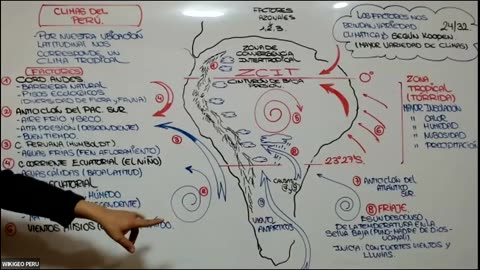 CLIMAS DEL
PERÚ.
- POR NUESTRA UBICACIÓN
LATITUDINAL NOS
CORRESPONDE UN
CLIMA TROPICAL
(FACTORES)
① CORD ANDES
- BARRERA NATURAL
- PISOS ECOLÓGICOS
(DIVERSIDAD DE FLORA y FAUNA)
② ANTICICLÓN DEL PAC SUR
- AIRE FRÍO y SECO
- ALTA PRESIÓN (DESCENDENTE)
- BUEN TIEMPO
③ C PERUANA (HUMBOLDT)
- AGUAS FRÍAS (FEN AFLORAMIENTO)
④ C CORRIENTE ECUATORIAL (EL NIÑO)
- AGUAS CÁLIDAS (BAJA LATITUD)
HÚMEDO
VIENTOS ALISIOS
FACTORES
AZONALES
1,2,3.
ZONA DE
CONVERGENCIA
INTERTROPICAL
ZCIT
CINTURÓN DE BAJA
PRESIÓN
VIENTO
0°
23°27'S
LOS FACTORES NOS
BRINDAN VARIEDAD
CLIMÁTICA
24/32
SEGÚN KOOPEN
(MAYOR VARIEDAD DE CLIMAS)
ZONA
TROPICAL
(TÓRRIDA)
MAYOR INSOLACIÓN
" CALOR
" HUMEDAD
" NUBOSIDAD
" PRECIPITACIÓN
⑦ ANTICICLÓN DEL
ATLÁNTICO
SUR
⑧ FRIAJE
ES UN DESCENSO
DE LA TEMPERATURA EN LA
SELVA BAJA (PUNO-MADRE DE DIOS-
UCAYALI)
INICIA: CON FUERTES VIENTOS y
LLUVIAS.
WIKIGEO PERU